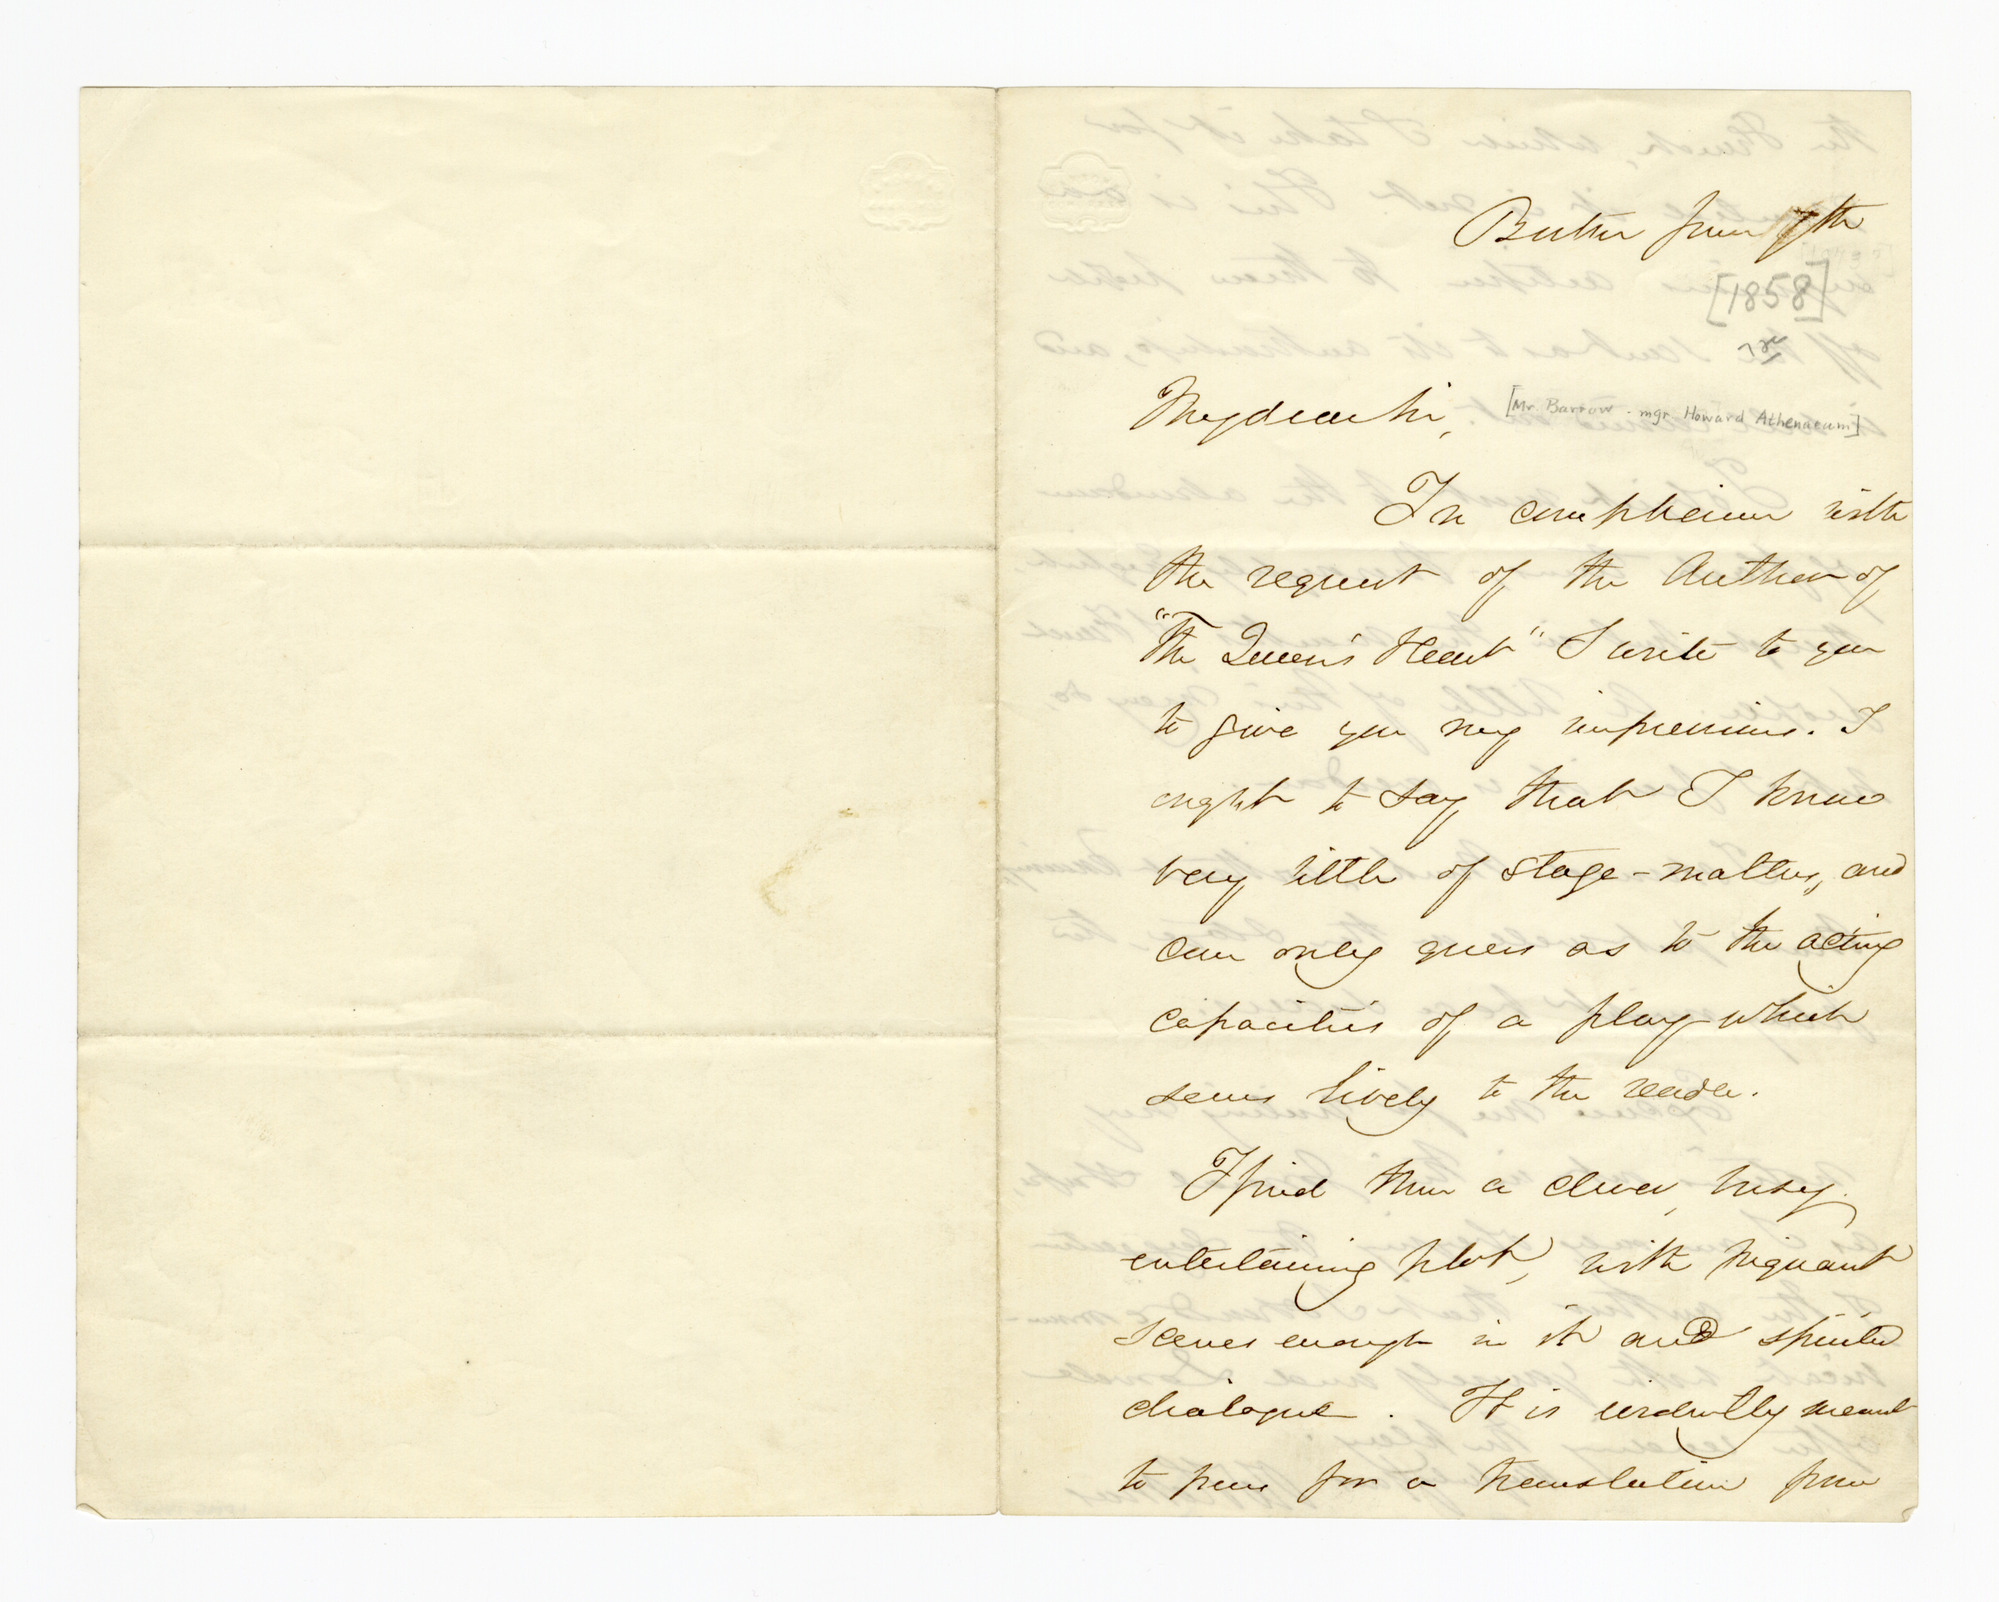 Boston June 7th
[1858]
My dear Sir,
[Mr. Barrow - mgr. Howard Athenaeum]
In compliance with
the request of the Author of
"The Queen's Heart" I write to you
to give you my impressions. I
ought to say that I know
very little of stage-matters, and
can only guess as to the acting
capacities of a play which
seems lively to the reader.
I find then a clever, busy
entertaining plot, with piquant
scenes enough in it and spirited
dialogue. It is evidently meant
to pass for a translation from